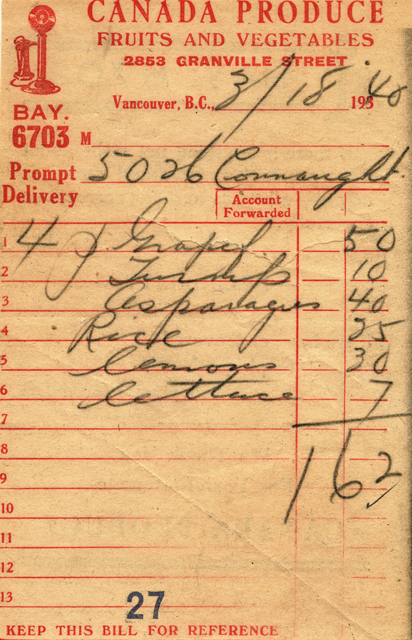 CANADA PRODUCE
FRUITS AND VEGETABLES
2853 GRANVILLE STREET
Vancouver, B.C., 3/18 193 40
BAY.
6703 M
Prompt Delivery 5026 Connaught.
Account Forwarded
1 4 Grapef 50
2 Turnips 10
3 Asparagus 40
4 Rice 25
5 lemons 30
6 lettuce 7
7
8 162
9
10
11
12
13 27
KEEP THIS BILL FOR REFERENCE